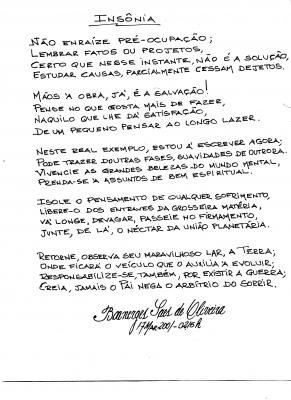 INSÔNIA
NÃO ENRAÍZE PRÉ-OCUPAÇÃO;
LEMBRAR FATOS OU PROJETOS,
CERTO QUE NESSE INSTANTE, NÃO É A SOLUÇÃO,
ESTUDAR CAUSAS, PARCIALMENTE CESSAM DEJETOS.
MÃOS 'A OBRA, JÁ, É A SALVAÇÃO!
PENSE NO QUE GOSTA MAIS DE FAZER,
NAQUILO QUE LHE DÁ SATISFAÇÃO,
DE UM PEQUENO PENSAR AO LONGO LAZER.
NESTE REAL EXEMPLO, ESTOU A' ESCREVER AGORA;
PODE TRAZER DOUTRAS FASES, SUAVIDADES DE OUTRORA.
VIVENCIE AS GRANDES BELEZAS DO MUNDO MENTAL,
PRENDA-SE A' ASSUNTOS DE BEM ESPIRITUAL.
ISOLE O PENSAMENTO DE QUALQUER SOFRIMENTO,
LIBERE-O DOS ENTRAVES DA GROSSEIRA MATÉRIA,
VÁ LONGE, DEVAGAR, PASSEIE NO FIRMAMENTO,
JUNTE, DE LÁ, O NÉCTAR DA UNIÃO PLANETÁRIA.
RETORNE, OBSERVA SEU MARAVILHOSO LAR, A TERRA;
ONDE FICARÁ O VEÍCULO QUE O AUXILIA A EVOLUIR;
RESPONSABILIZE-SE, TAMBÉM, POR EXISTIR A GUERRA;
CREIA, JAMAIS O PAI NEGA O ARBÍTRIO DO SORRIR.
Boanerges Saes de Oliveira